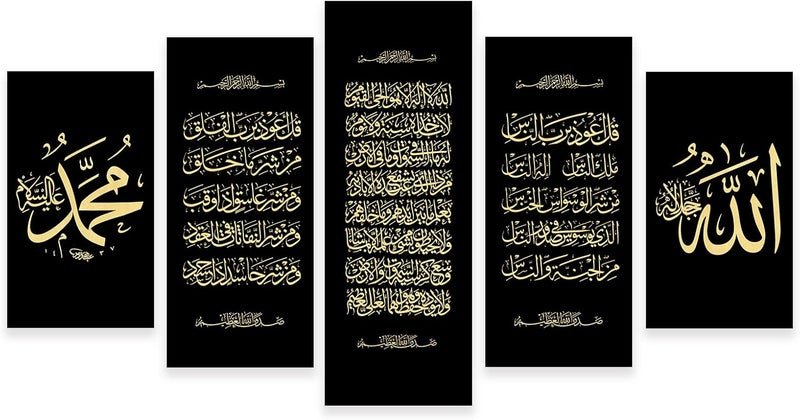 الله جل جلاله
بسم الله الرحمن الرحيم
قل اعوذ برب الناس
ملك الناس اله الناس
من شر الوسواس الخناس
الذي يوسوس في صدور الناس
من الجنة والناس
صدق الله العظيم
بسم الله الرحمن الرحيم
الله لا اله الا هو الحي القيوم
لا تاخذه سنة ولا نوم
له ما في السموات وما في الارض
من ذا الذي يشفع عنده الا باذنه
يعلم ما بين ايديهم وما خلفهم
ولا يحيطون بشيء من علمه الا بما شاء
وسع كرسيه السموات والارض
ولا يؤده حفظهما وهو العلي العظيم
صدق الله العظيم
بسم الله الرحمن الرحيم
قل اعوذ برب الفلق
من شر ما خلق
ومن شر غاسق اذا وقب
ومن شر النفاثات في العقد
ومن شر حاسد اذا حسد
صدق الله العظيم
محمد عليه السلام